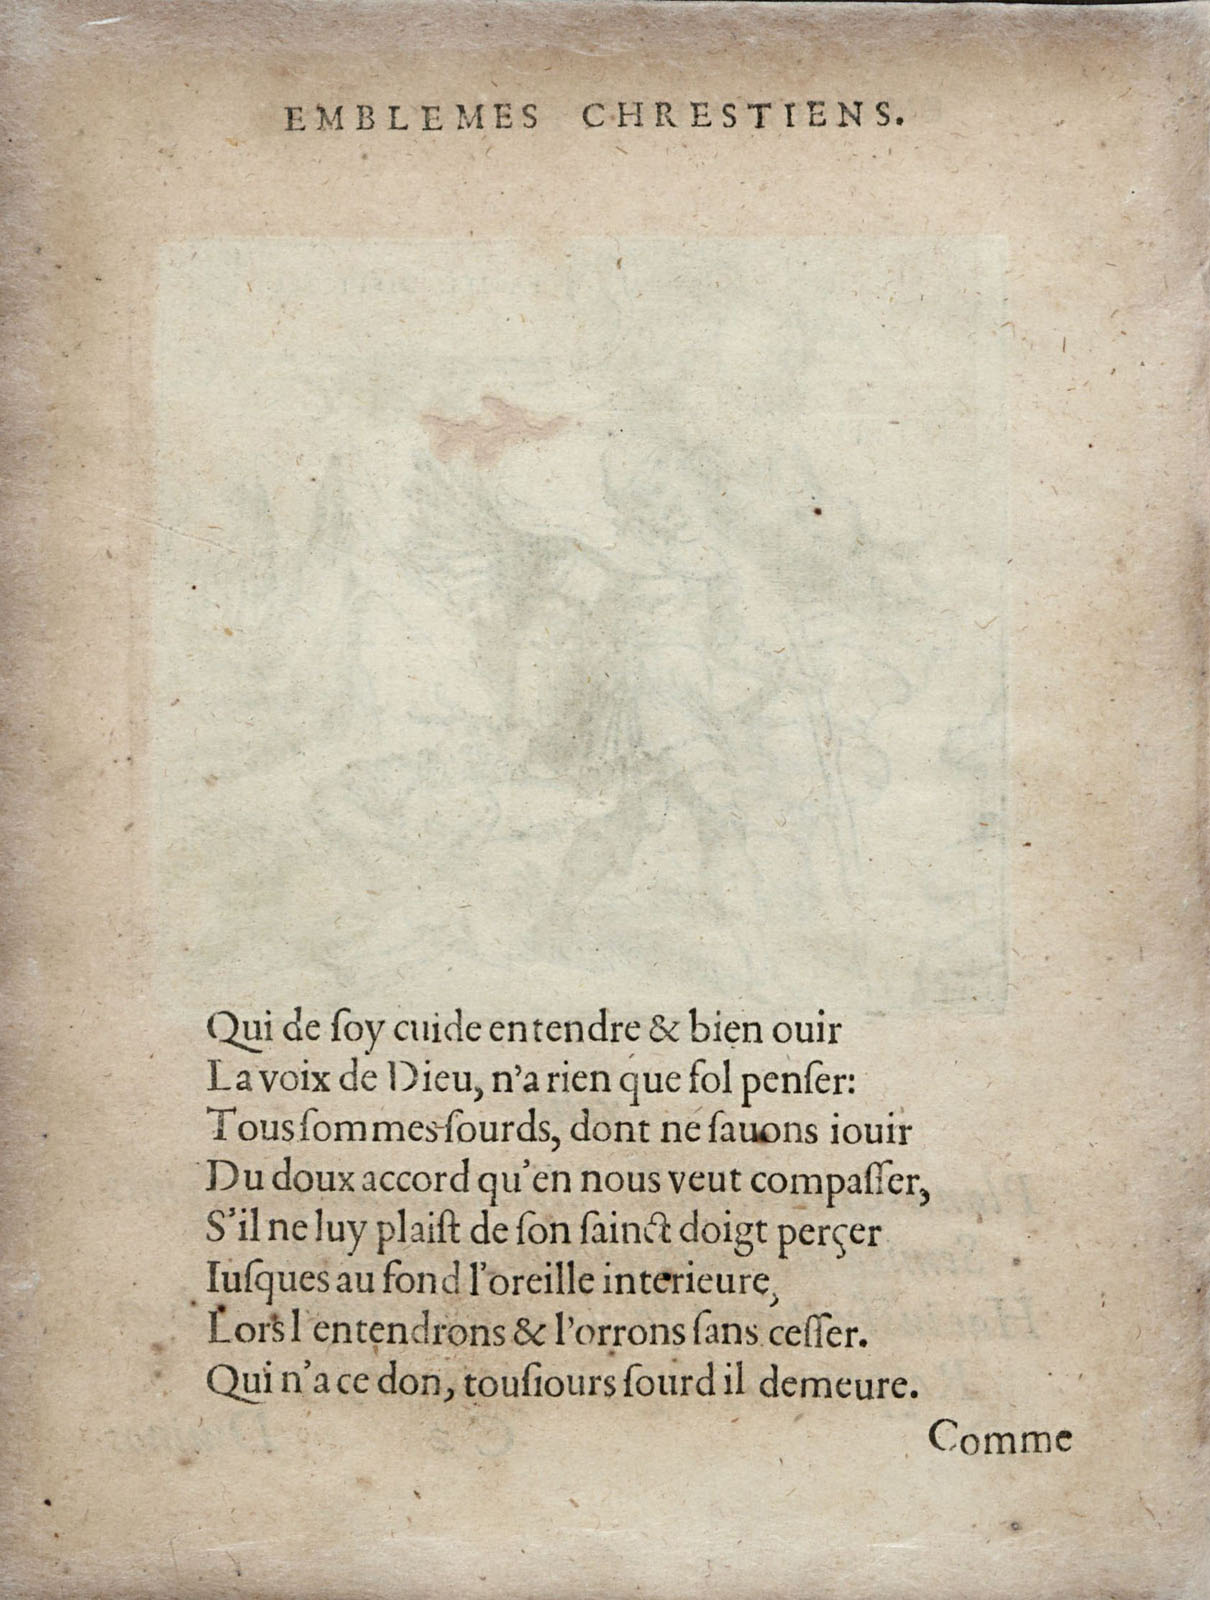 EMBLEMES CHRESTIENS.
Qui de ſoy cuide entendre & bien ouir
La voix de Dieu, n'a rien que fol penſer:
Tous ſommes ſourds, dont ne ſauons iouir
Du doux accord qu'en nous veut compaſſer,
S'il ne luy plaiſt de ſon ſainct doigt perçer
Iuſques au fond l'oreille interieure,
Lors l'entendrons & l'orrons ſans ceſſer.
Qui n'a ce don, touſiours ſourd il demeure.
Comme